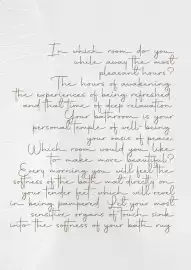 In which room do you
while away the most
pleasant hours?
The hours of awakening
the experiences of being refreshed
and that time of deep relaxation
Your bathroom is your
personal temple of well-being
your oasis of peace
Which room would you like
to make more beautiful?
Every morning you will feel the
softness of the bath mat directly on
your tender feet, which will revel
in being pampered. Let your most
sensitive organs of touch sink
into the softness of your bath rug